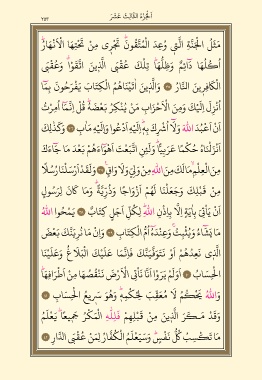 الجزء الثالث عشر
٢٥٣
مَثَلُ الْجَنَّةِ الَّتِي وُعِدَ الْمُتَّقُونَۜ تَجْرِي مِنْ تَحْتِهَا الْاَنْهَارُۜ
اُكُلُهَا دَٓائِمٌ وَظِلُّهَاۜ تِلْكَ عُقْبَى الَّذِينَ اتَّقَوْاۗ وَعُقْبَى
الْكَافِرِينَ النَّارُ ۝ وَالَّذِينَ اٰتَيْنَاهُمُ الْكِتَابَ يَفْرَحُونَ بِمَٓا
اُنْزِلَ اِلَيْكَ وَمِنَ الْاَحْزَابِ مَنْ يُنْكِرُ بَعْضَهُۜ قُلْ اِنَّمَٓا اُمِرْتُ
اَنْ اَعْبُدَ اللّٰهَ وَلَٓا اُشْرِكَ بِهِۜ اِلَيْهِ اَدْعُوا وَاِلَيْهِ مَاٰبِ ۝ وَكَذٰلِكَ
اَنْزَلْنَاهُ حُكْمًا عَرَبِيًّاۜ وَلَئِنِ اتَّبَعْتَ اَهْوَٓاءَهُمْ بَعْدَ مَا جَٓاءَكَ
مِنَ الْعِلْمِۙ مَا لَكَ مِنَ اللّٰهِ مِنْ وَلِيٍّ وَلَا وَاقٍ ۝ وَلَقَدْ اَرْسَلْنَا رُسُلًا
مِنْ قَبْلِكَ وَجَعَلْنَا لَهُمْ اَزْوَاجًا وَذُرِّيَّةًۜ وَمَا كَانَ لِرَسُولٍ
اَنْ يَأْتِيَ بِاٰيَةٍ اِلَّا بِاِذْنِ اللّٰهِۜ لِكُلِّ اَجَلٍ كِتَابٌ ۝ يَمْحُوا اللّٰهُ
مَا يَشَٓاءُ وَيُثْبِتُۚ وَعِنْدَهُٓ اُمُّ الْكِتَابِ ۝ وَاِنْ مَا نُرِيَنَّكَ بَعْضَ
الَّذِي نَعِدُهُمْ اَوْ نَتَوَفَّيَنَّكَ فَاِنَّمَا عَلَيْكَ الْبَلَاغُ وَعَلَيْنَا
الْحِسَابُ ۝ اَوَلَمْ يَرَوْا اَنَّا نَأْتِي الْاَرْضَ نَنْقُصُهَا مِنْ اَطْرَافِهَاۜ
وَاللّٰهُ يَحْكُمُ لَا مُعَقِّبَ لِحُكْمِهِۜ وَهُوَ سَرِيعُ الْحِسَابِ ۝
وَقَدْ مَكَرَ الَّذِينَ مِنْ قَبْلِهِمْ فَلِلّٰهِ الْمَكْرُ جَمِيعًاۜ يَعْلَمُ
مَا تَكْسِبُ كُلُّ نَفْسٍۜ وَسَيَعْلَمُ الْكُفَّارُ لِمَنْ عُقْبَى الدَّارِ ۝